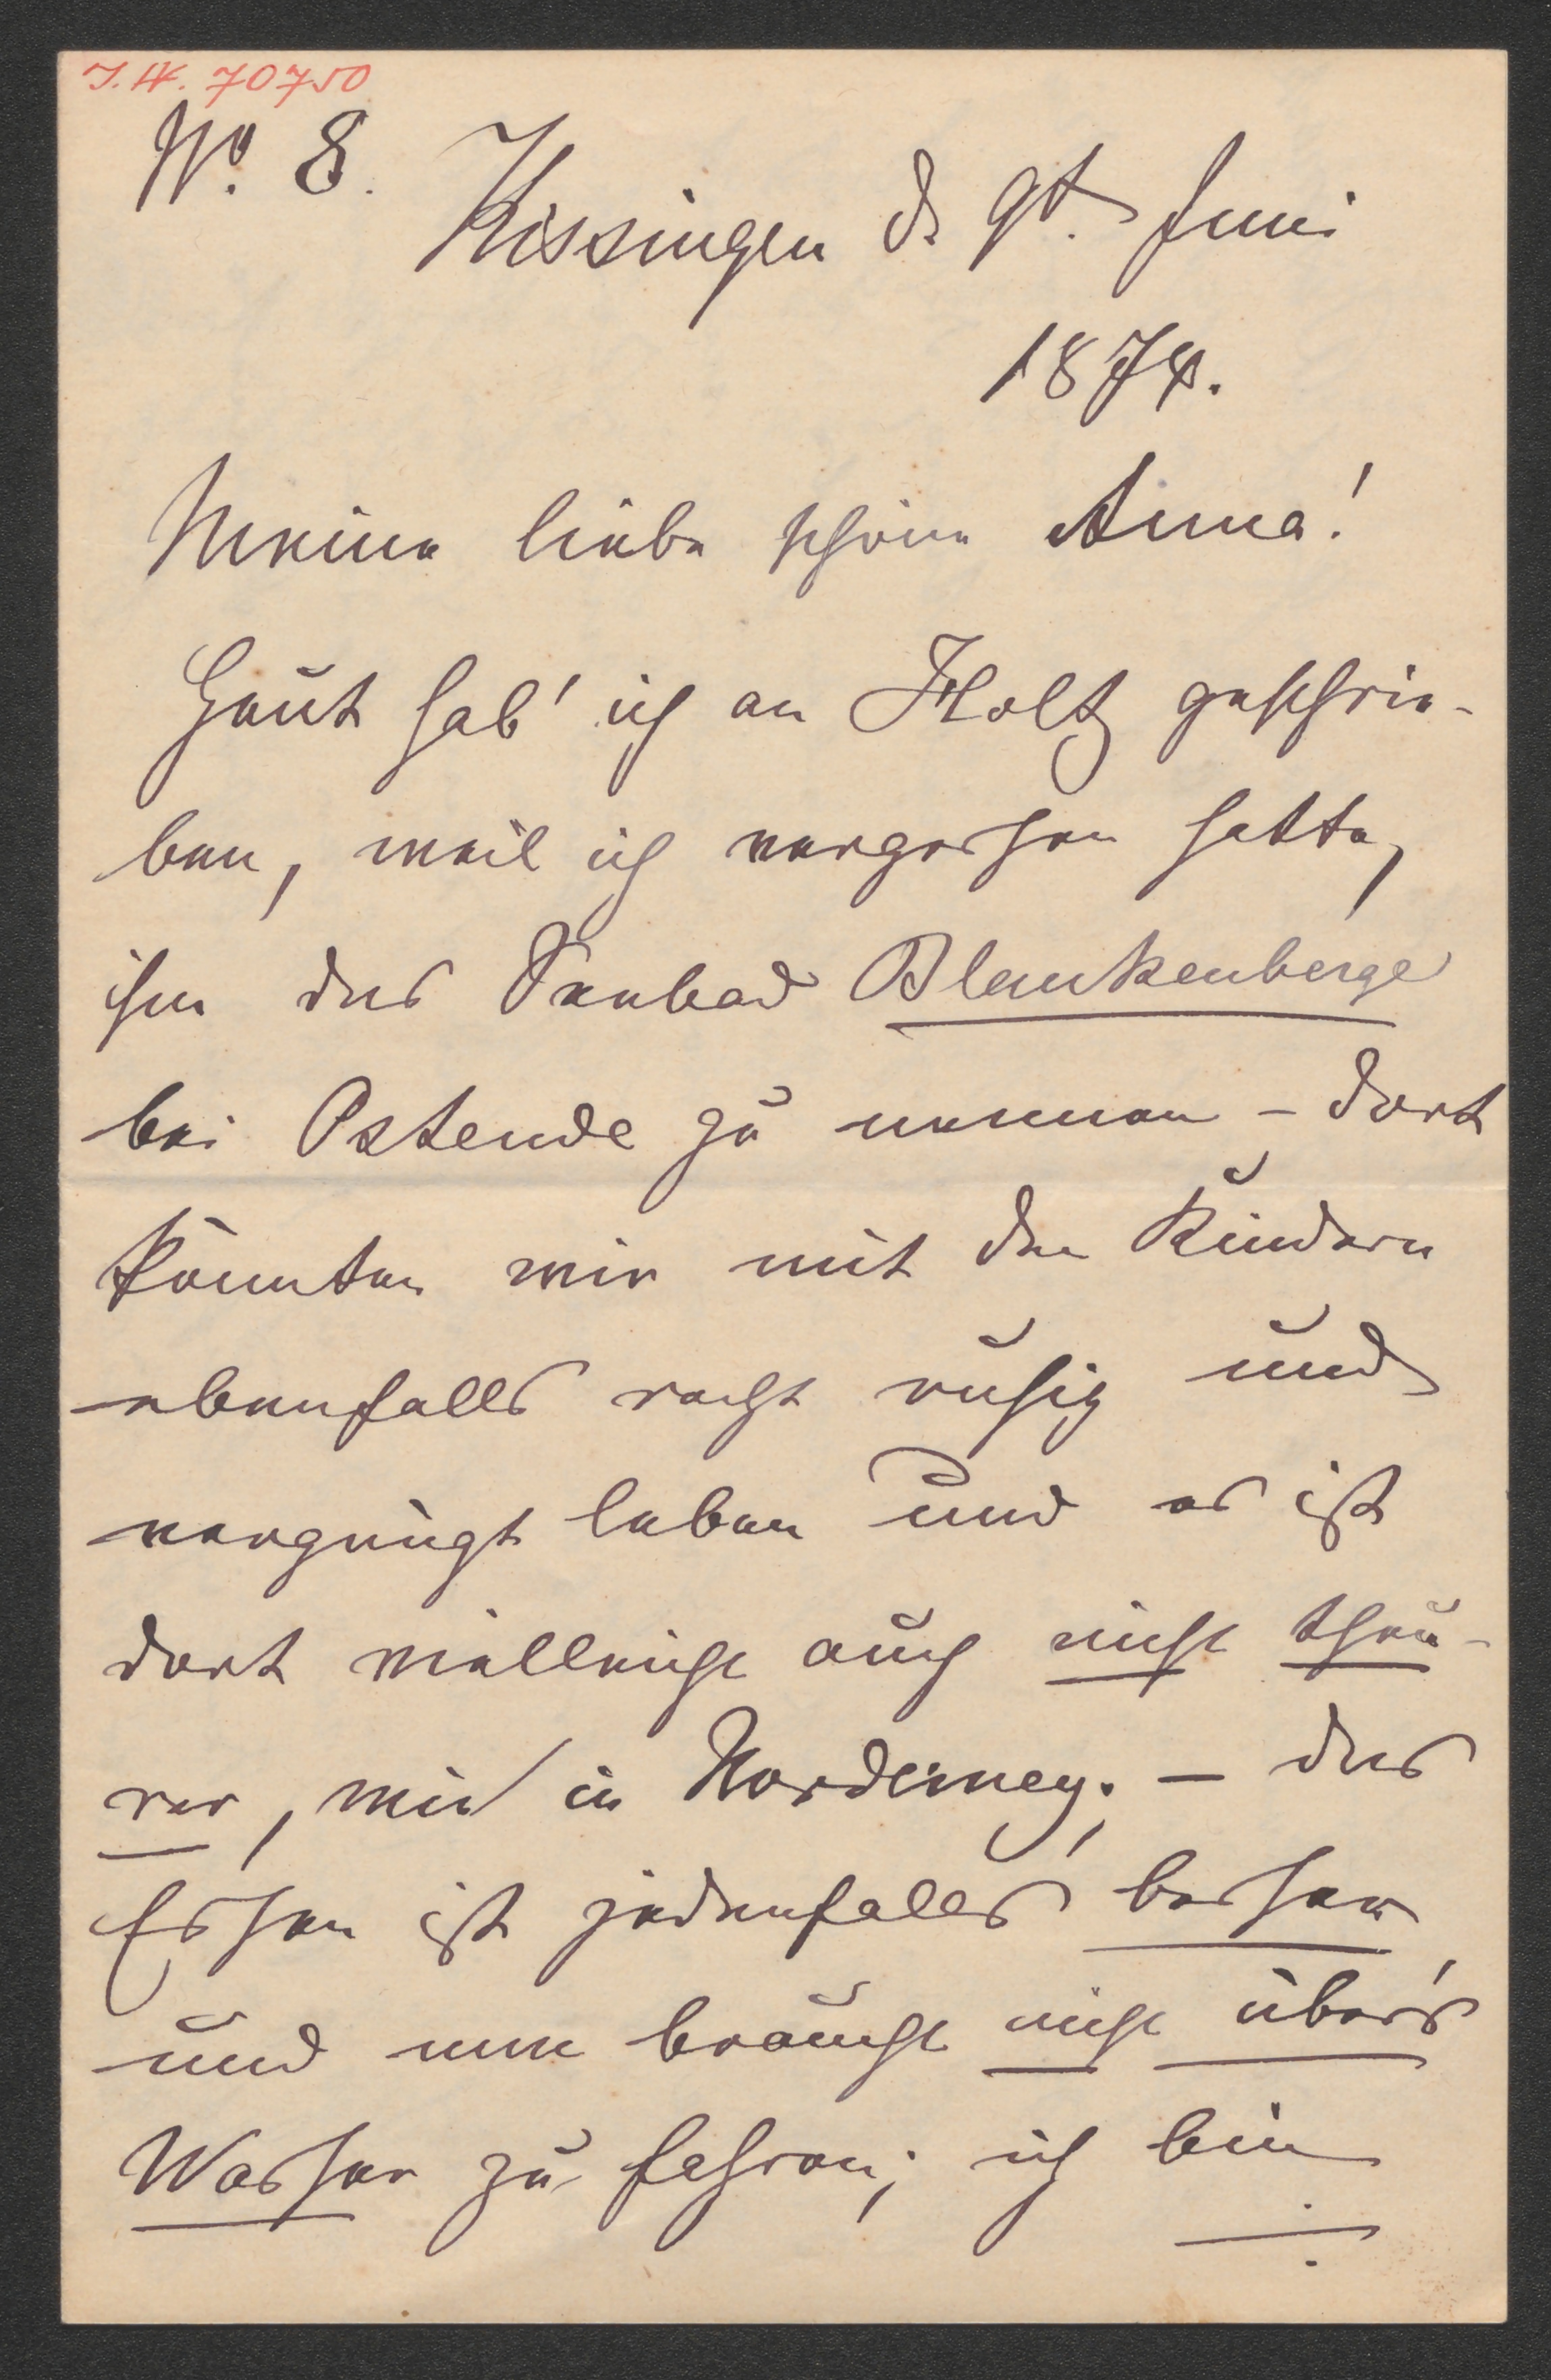 I.N. 70750
No. 8. Kissingen d. 9t. Juni
1874.
Meine liebe schöne Anna!
Heut hab' ich an Holtz geschrie-
ben, weil ich vergessen hatte,
ihm das Seebad Blankenberge
bei Ostende zu nennen – dort
könnten wir mit den Kindern
ebenfalls recht ruhig und
vergnügt leben und es ist
dort vielleicht auch nicht theu-
rer, wie in Norderney; – das
Essen ist jedenfalls besser
und man braucht nicht über's
Wasser zu fahren; ich bin